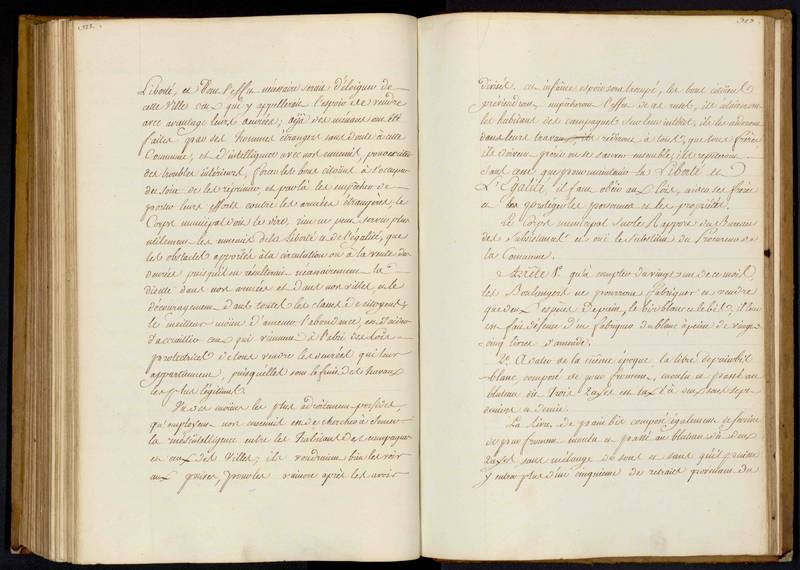 322.
Liberté, et dont l'effet nécessaire serait d'éloigner de
cette Ville ceux qui y appelleroit l'espoir de vendre
avec avantage leurs denrées; déjà des menaces ont été
faites par des hommes étrangers sans doute à cette
Commune, et d'intelligence avec nos ennemis, pour exciter
des troubles intérieurs, forcer les bons citoiens à s'occuper
du soin de les réprimer, et par là les empêcher de
porter leurs efforts contre les armées étrangères; le
Corps municipal doit le dire, rien ne peut servir plus
utilement les ennemis de la liberté et de l'égalité, que
les obstacles apportés à la circulation ou à la vente des
denrées puisqu'il en résulteroit nécessairement la
disette dans nos armées et dans nos villes, et le
découragement dans toutes les classes de citoyens;
le meilleur moien d'amener l'abondance, est d'aider
d'accueillir ceux qui viennent à l'abri des loix
protectrices de tous vendre les denrées qui leur
appartiennent, puisqu'elles sont le fruit des travaux
les plus légitimes.
Un des moiens les plus adroitement perfides,
qu'employent nos ennemis est de chercher à semer
la mésintelligence entre les habitans des campagnes
et ceux des Villes; ils voudraient bien les voir
aux prises, pour les vaincre après les avoir
323.
divisés. cet infâme espoir sera trompé, les bons citoiens
préviendront, empêcheront l'effet de ces ruses, ils éclaireront
les habitans des campagnes sur leur intérêt, ils les aideront
dans leurs travaux, ils rediront à tous, que tous frères
ils doivent périr ou se sauver ensemble; ils répéteront
sans cesse que pour maintenir la Liberté et
L'Egalité, il faut obéir aux loix, aider ses frères
et protéger les personnes et les propriétés.
Le Corps municipal sur le Rapport du Bureau
des subsistances et ouï le substitut du Procureur de
la Commune.
Arrête 1° qu'à compter du vingt un de ce mois,
les Boulangers ne pourront fabriquer et vendre
que deux especes de pain, le bis blanc et le bis; il leur
est fait défense d'en fabriquer du blanc à peine de vingt-
cinq livres d'amende.
2° A dater de la même époque la livre de pain bis
blanc, composé de pur froment, moulu et passé au
bluteau de trois Razes est taxé à deux sous sept
deniers et demie.
La livre de pain bis composé également de farine
de pur froment moulu et passé au bluteau de deux
Razes sans mélange de sons et sans qu'il puisse
y entrer plus d'un cinquième de retraits provenant du